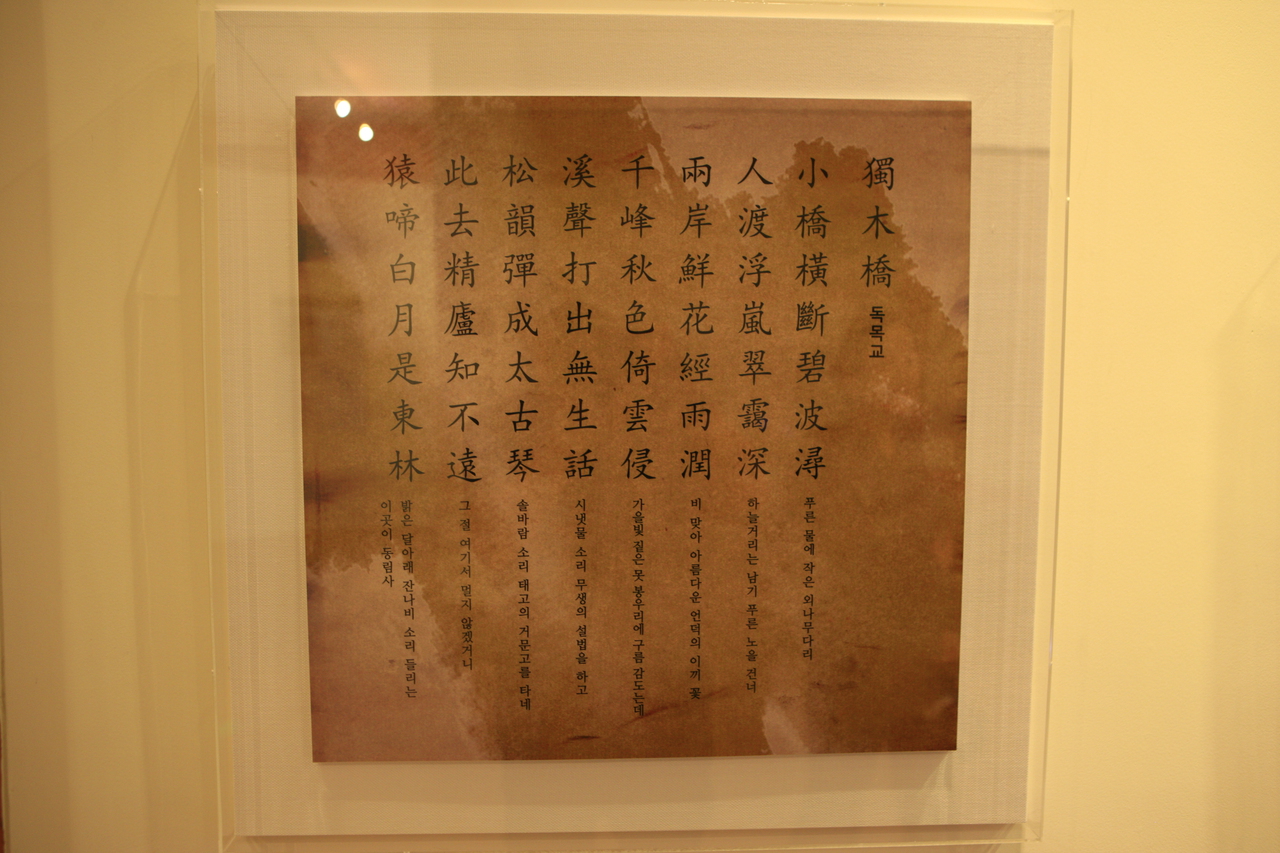 獨木橋 독목교
小橋橫斷碧波潯 푸른 물에 작은 외나무다리
人渡浮嵐翠靄深 하늘거리는 남기 푸른 노을 건너
兩岸鮮花經雨潤 비 맞아 아름다운 언덕의 이끼 꽃
千峰秋色倚雲侵 가을빛 짙은 못 봉우리에 구름 감도는데
溪聲打出無生話 시냇물 소리 무생의 설법을 하고
松韻彈成太古琴 솔바람 소리 태고의 거문고를 타네
此去精廬知不遠 그 절 여기서 멀지 않겠거니
猿啼白月是東林 밝은 달아래 잔나비 소리 들리는
이곳이 동림사